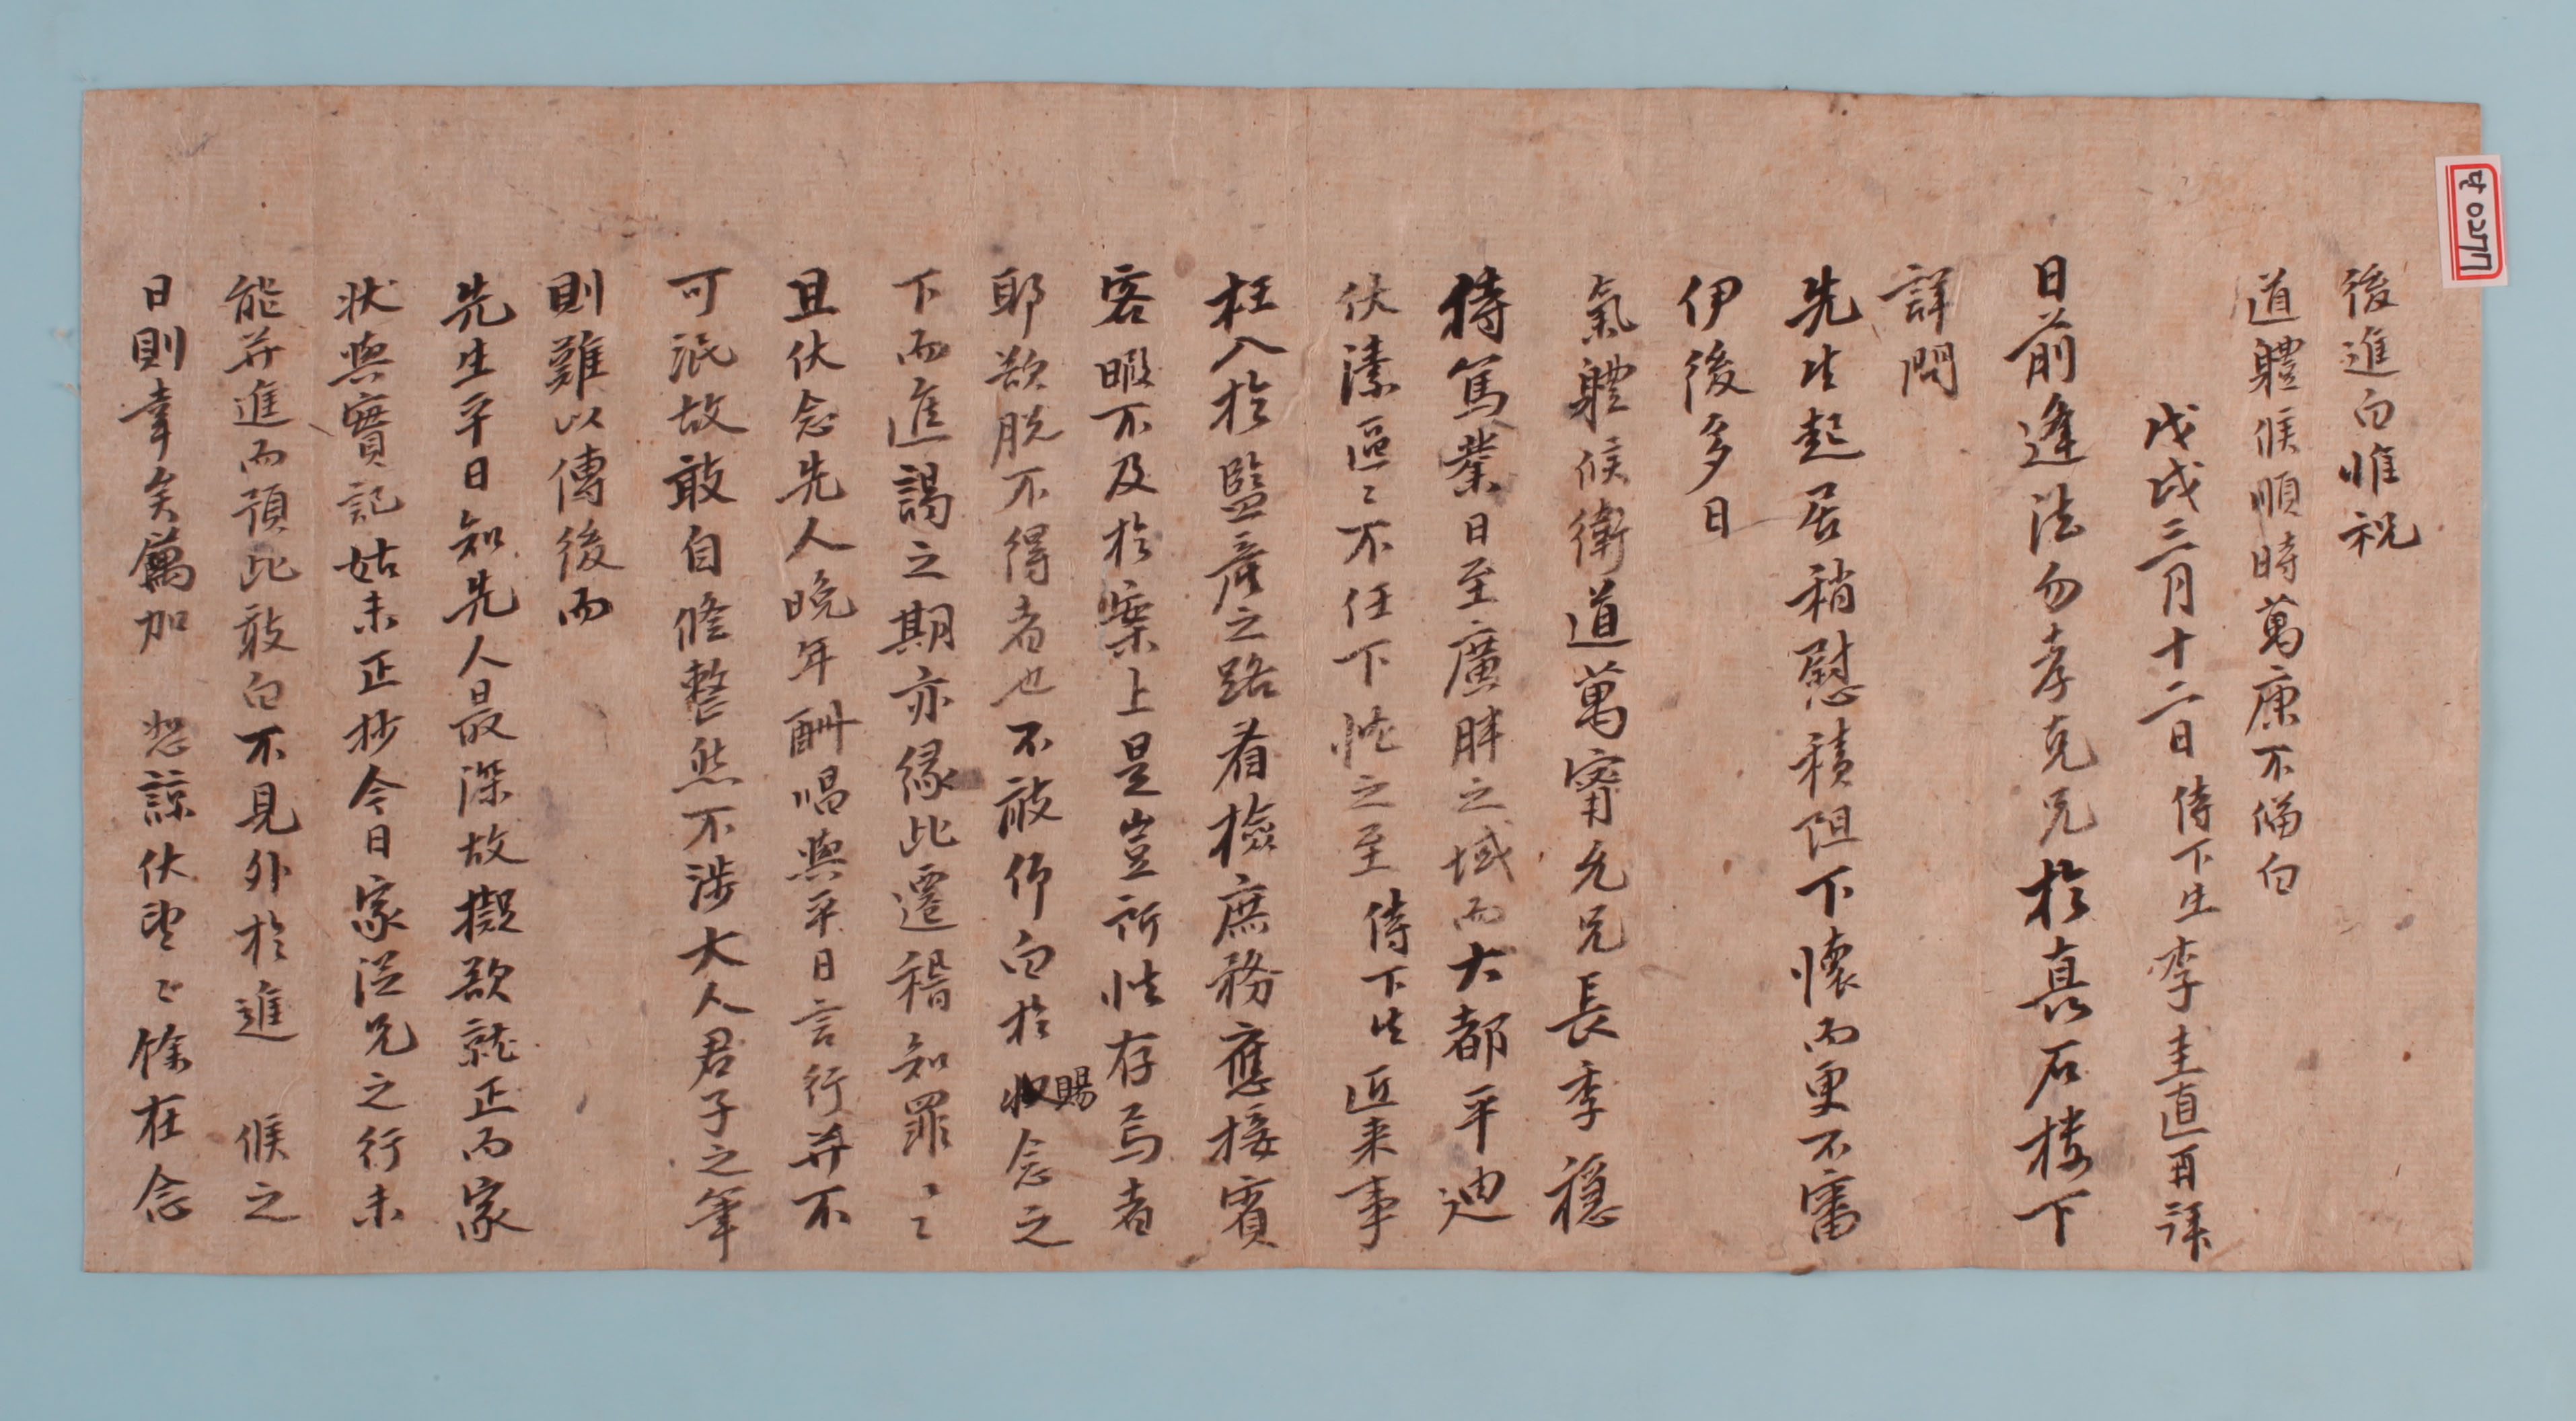 후0277
後進白惟祝
道體候順時萬康不備白
戊戌三月十二日 侍下生李圭直再拜
日前逢法勿孝克兄於真石樓下
詳問
先生起居稍慰積阻下懷而更不審
伊後多日
氣體候衛道萬寗允兄長季穩
侍篤業日至廣胖之域而大都平迪
伏溸區〻不任下忱之至侍下生近来事
枉入於監産之路看檢庶務應接賓
客暇不及於案上是豈所性存焉者
耶欲脫不得者也不敢仰白於收賜念之
下而進謁之期亦緣此遷稽知罪〻〻
且伏念先人晩年酬唱與平日言行并不
可泯故敢自修整然不涉大人君子之筆
則難以傳後而
先生平日知先人最深故擬欲就正而家
狀與實記姑未正抄今日家從兄之行未
能并進而預此敢白不見外於進 候之
日則幸矣厲加 恕諒伏望〻餘在念